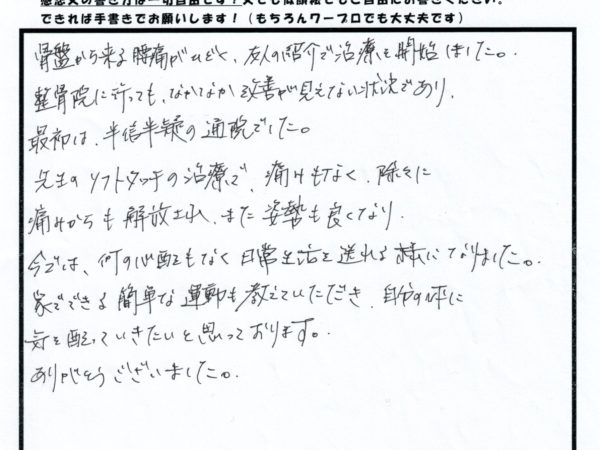 できれば手書きでお願いします!(もちろんワープロでも大丈夫です)
骨盤から来る腰痛がひどく、友人の紹介で治療を開始しました。
整骨院に行っても、なかなか改善が見えない状況であり、
最初は、半信半疑の通院でした。
先生のソフトタッチの治療で、痛みもなく、除々に
痛みからも解放され、また姿勢も良くなり、
今では、何の心配もなく日常生活を送れる様になりました。
家でできる簡単な運動も教えていただき、自分の体に
気を配っていきたいと思っております。
ありがとうございました。